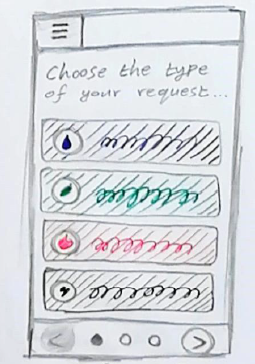 Choose the type
of your request...